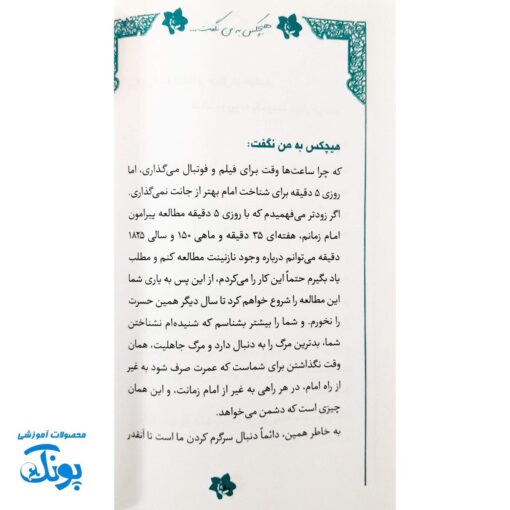 هیچکس به من نگفت...
هیچکس به من نگفت:
که چرا ساعت‌ها وقت برای فیلم و فوتبال می‌گذاری، اما
روزی ۵ دقیقه برای شناخت امام بهتر از جانت نمی‌گذاری.
اگر زودتر می‌فهمیدم که با روزی ۵ دقیقه مطالعه پیرامون
امام زمانم، هفته‌ای ۳۵ دقیقه و ماهی ۱۵۰ و سالی ۱۸۲۵
دقیقه می‌توانم درباره وجود نازنینت مطالعه کنم و مطلب
یاد بگیرم حتماً این کار را می‌کردم، از این پس به یاری شما
این مطالعه را شروع خواهم کرد تا سال دیگر همین حسرت
را نخورم. و شما را بیشتر بشناسم که شنیده‌ام نشناختن
شما، بدترین مرگ را به دنبال دارد و مرگ جاهلیت، همان
وقت نگذاشتن برای شماست که عمرت صرف شود به غیر
از راه امام، در هر راهی به غیر از امام زمانت، و این همان
چیزی است که دشمن می‌خواهد.
به خاطر همین، دائماً دنبال سرگرم کردن ما است تا آنقدر
محصولات آموزشی
پونک